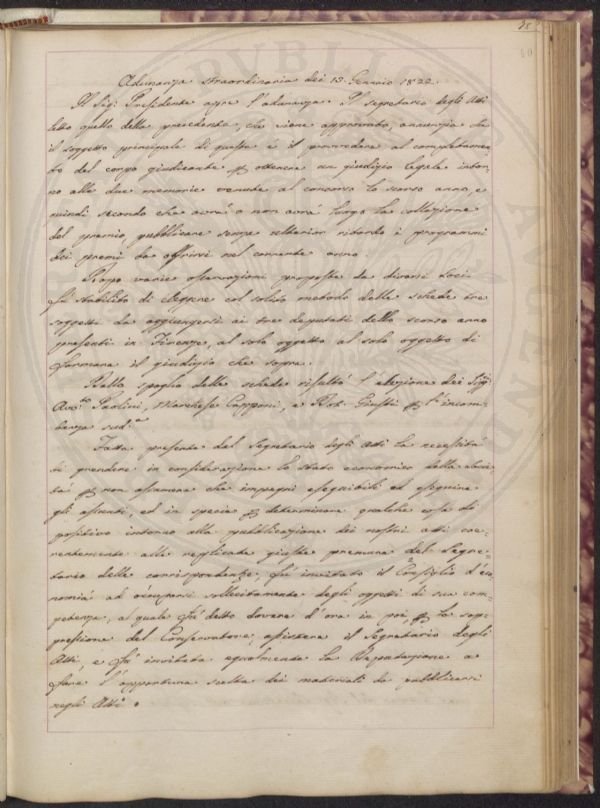 38
60
Adunanza straordinaria dei 13. Gennaio 1822.
Il Sig: Presidente apre l'adunanza. Il segretario degli Atti
letto quello della precedente, che viene approvato, annunzia che
il soggetto principale di questa è il provvedere al completamen-
to del corpo giudicante per ottenere un giudizio legale intor-
no alle due memorie venute al concorso lo scorso anno, e
quindi secondo che avrà o non avrà luogo la collazione
del premio, pubblicare senza ulterior ritardo i programmi
dei premi da offrirsi nel corrente anno.
Dopo varie osservazioni proposte da diversi Soci
fù stabilito di eleggere col solito metodo delle schede tre
soggetti da aggiungersi ai tre deputati dello scorso anno
presenti in Firenze, al solo oggetto al solo oggetto di
formare il giudizio che sopra.
Dallo spoglio delle schede risultò l'elezione dei Sigg:
Avv:to Paolini, Marchese Capponi, e Dot. Giusti per l'incom-
benza sud.a
Fatta presente dal Segretario degli Atti la necessità
di prendere in considerazione lo stato economico della socie-
tà per non assumere che impegni eseguibili ed eseguire
gli assunti, ed in specie per determinare qualche cosa di
positivo intorno alla pubblicazione dei nostri atti coe-
rentemente alle replicate giuste premure del Segre-
tario delle corrispondenze, fù invitato il Consiglio d'eco
nomia ad occuparsi sollecitamente degli oggetti di sua com-
petenza, al quale fù detto dovere d'ora in poi, per la sop-
pressione del Conservatore, assistere il Segretario degli
Atti, e fù invitata egualmente la Deputazione a
fare l'opportuna scelta dei materiali da pubblicarsi
negli Atti.